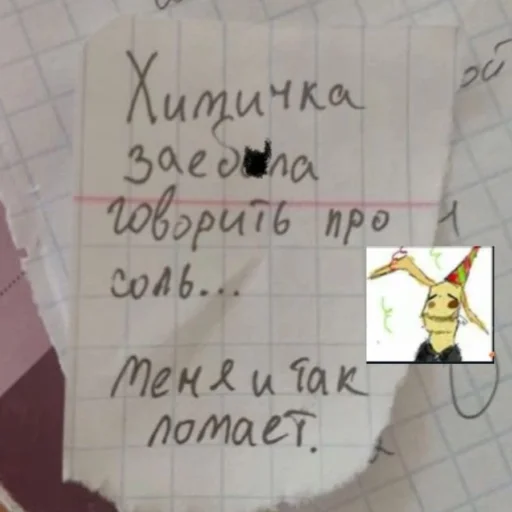 Химичка
заеб■ла
говорить про
соль...
Меня и так
ломает.
ой